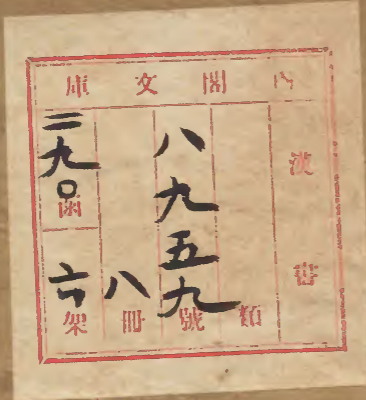 内閣文庫
漢書
類
八九五九號
八冊
二九〇函
六架